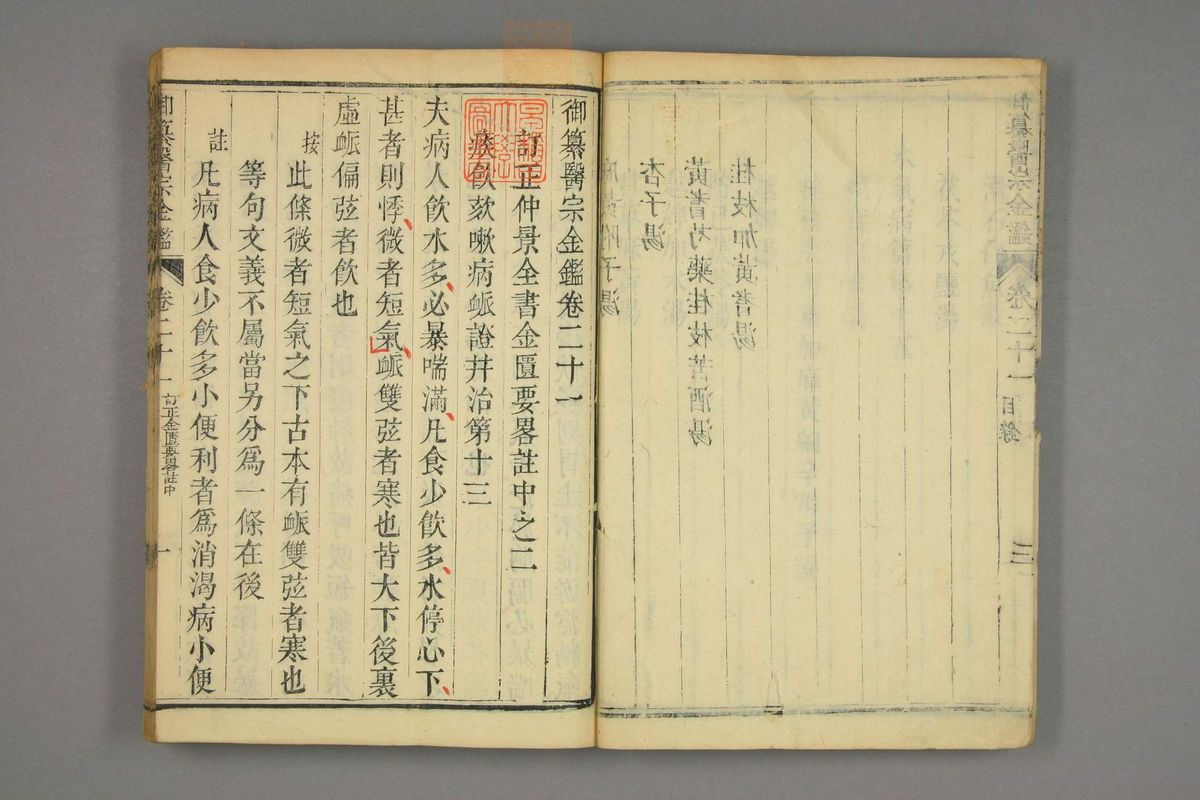 御纂醫宗金鑑 卷二十一 目錄 三
桂枝加黃耆湯
黃耆芍藥桂枝苦酒湯
杏子湯
麻黃附子湯
御纂醫宗金鑑卷二十一
訂正仲景全書金匱要畧註中之二
痰飲欬嗽病䘑證幷治第十三
夫病人飲水多必暴喘滿凡食少飲多水停心下
甚者則悸微者短氣䘑雙弦者寒也皆大下後裏
虛䘑偏弦者飲也
按此條微者短氣之下古本有䘑雙弦者寒也
等句文義不屬當另分爲一條在後
註凡病人食少飲多小便利者爲消渴病小便
御纂醫宗金鑑 卷二十一 訂正金匱要畧註中 一